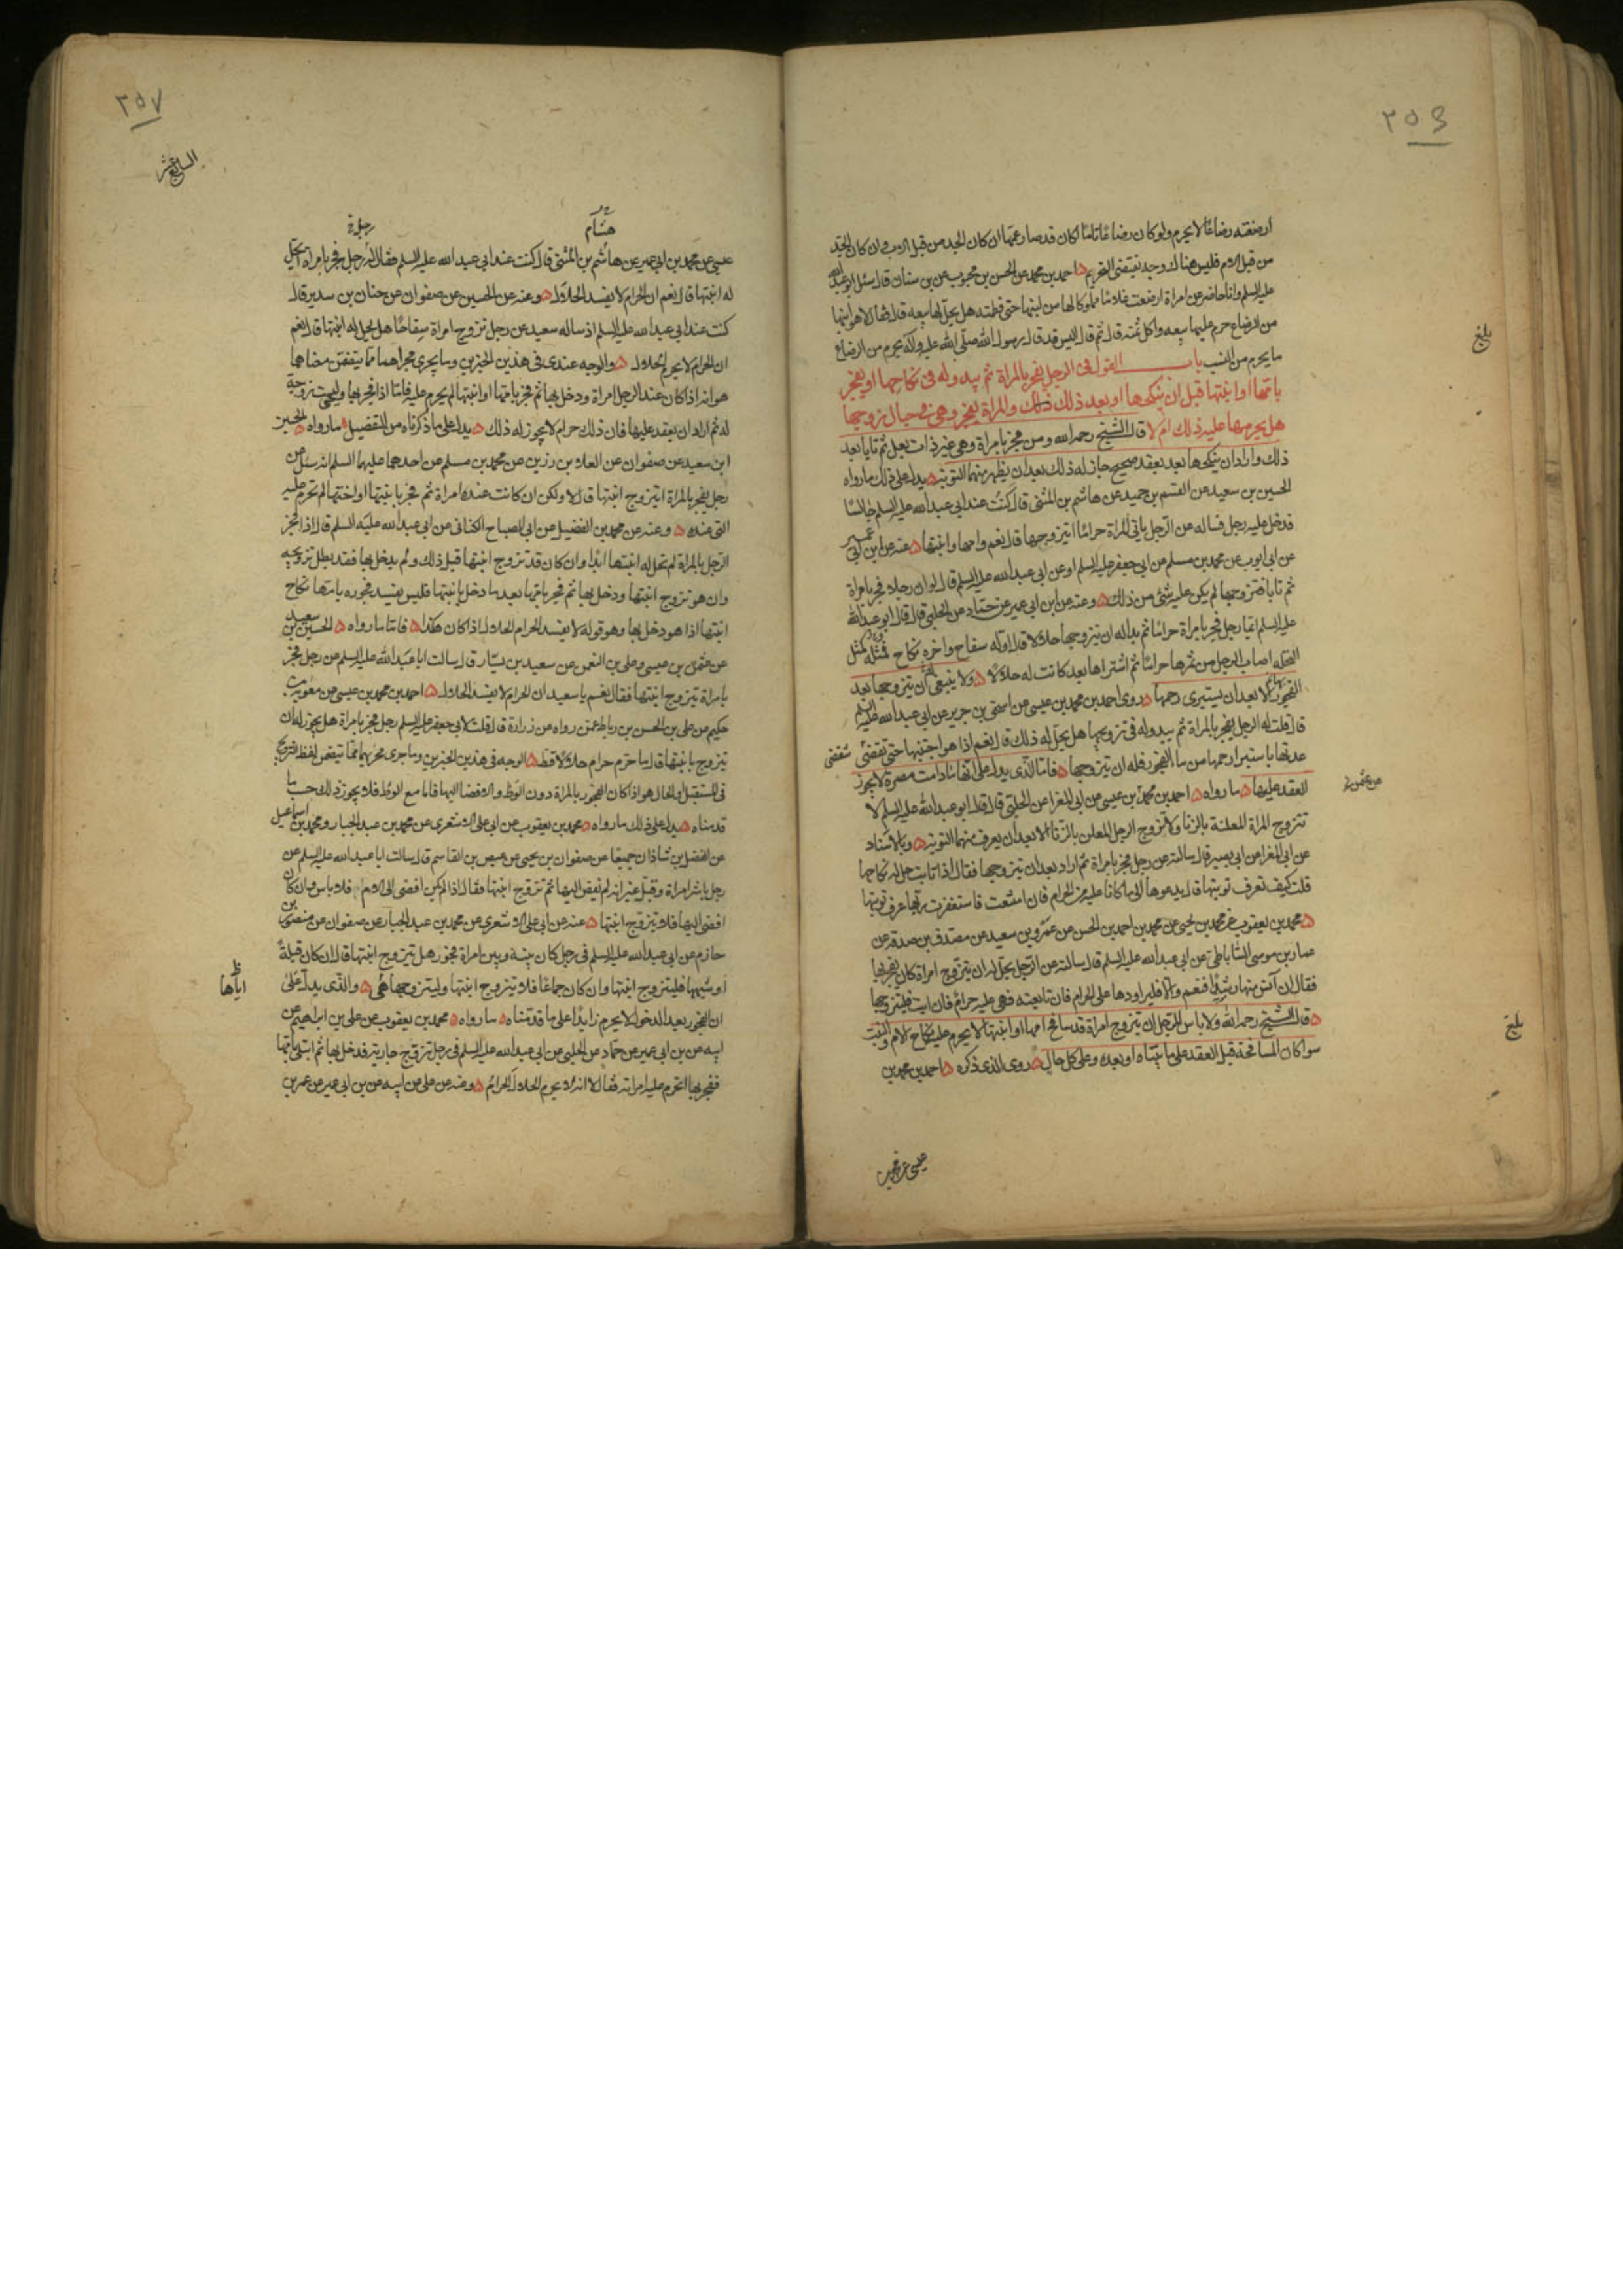 ٢٥٦
ارضعته رضاعا لا يحرم ولو كان رضاعا تاما لكان قد صار عمها ان كان الجد من قبل الاب وان كان الجد
من قبل الام فليس هناك وجه يقتضى التحريم احمد بن محمد عن الحسن بن محبوب عن بن سنان قال سئل ابو عبد الله
عليه السلم وانا حاضر عن امراة ارضعت غلاما مملوكا لها من لبنها حتى فطمته هل يحل لها بيعه قال لا هو ابنها
من الرضاع حرم عليها بيعه واكل ثمنه قال ثم قال اليس قد قال رسول الله صلى الله عليه وآله يحرم من الرضاع
ما يحرم من النسب باب القول فى الرجل يفجر بالمراة ثم يبدو له فى نكاحها او يفجر
بامها او ابنتها قبل ان ينكحها او بعد ذلك والمراة يفجر وهى فى حبال زوجها
هل يحرمها عليه ذلك ام لا قال الشيخ رحمه الله ومن فجر بامراة وهى غير ذات بعل ثم تابا بعد
ذلك واراد ان ينكحها بعد بعقد صحيح جاز له ذلك بعد ان يظهر منهما التوبة يدل على ذلك ما رواه
الحسين بن سعيد عن القسم بن حميد عن هاشم بن المثنى قال كنت عند ابى عبد الله عليه السلم جالسا
فدخل عليه رجل فساله عن الرجل ياتى المراة حراما ايتزوجها قال نعم وامها وابنتها عنه عن ابن ابى عمير
عن ابى ايوب عن محمد بن مسلم عن ابى جعفر عليه السلم او عن ابى عبد الله عليه السلم قال لو ان رجلا فجر بامراة
ثم تابا فتزوجها لم يكن عليه شئ من ذلك وعنه عن ابن ابى عمير عن حماد عن الحلبى قال قال ابو عبد الله
عليه السلم ايما رجل فجر بامراة حراما ثم بدا له ان يتزوجها حلالا قال اوله سفاح واخره نكاح فمثله كمثل
النخلة اصاب الرجل من ثمرها حراما ثم اشتراها بعد كانت له حلالا ولا ينبغى ان يتزوجها بعد
الفجور بها الا بعد ان يستبرى رحمها روى احمد بن محمد بن عيسى عن اسحق بن جرير عن ابى عبد الله عليه السلم
قال قلت له الرجل يفجر بالمراة ثم يبدو له فى تزويجها هل يحل له ذلك قال نعم اذا هو اجتنبها حتى تنقضى
عدتها باستبراء رحمها من ماء الفجور فله ان يتزوجها فاما الذى يدل على انها ما دامت مصرة لا يجوز
العقد عليها ما رواه احمد بن محمد بن عيسى عن ابى المغرا عن الحلبى قال قال ابو عبد الله عليه السلم لا
تتزوج المراة المعلنة بالزنا ولا تزوج الرجل المعلن بالزنا الا بعد ان يعرف منهما التوبة وبالاسناد
عن ابى المغرا عن ابى بصير قال سالته عن رجل فجر بامراة ثم اراد بعد ان يتزوجها فقال اذا تابت حل له نكاحها
قلت كيف تعرف توبتها قال يدعوها الى ما كانا عليه من الحرام فان امتنعت فاستغفرت ربها عرف توبتها
محمد بن يعقوب عن محمد بن يحيى عن محمد بن احمد بن الحسن عن عمرو بن سعيد عن مصدق بن صدقه عن
عمار بن موسى الساباطى عن ابى عبد الله عليه السلم قال سالته عن الرجل يحل له ان يتزوج امراة كان يفجر بها
فقال ان آنس منها رشدا فنعم والا فليراودها على الحرام فان تابعته فهى عليه حرام فان ابت فليتزوجها
قال الشيخ رحمه الله ولا باس للرجل ان يتزوج امراة قد سافح امها او ابنتها لا يحرم عليه نكاح الام والبنت
سوا كان المسافحة قبل العقد على ما بيناه او بعده وعلى كل حال روى الذى ذكره احمد بن محمد بن
بلغ
بلغ
٢٥٧
السابع عشر
هشام
عيسى عن محمد بن ابى عمير عن هاشم بن المثنى قال كنت عند ابى عبد الله عليه السلم فقال له رجل رجل فجر بامراة اتحل
له ابنتها قال نعم ان الحرام لا يفسد الحلال وعنه عن الحسين عن صفوان عن حنان بن سدير قال
كنت عند ابى عبد الله عليه السلم اذ ساله سعيد عن رجل تزوج امراة سفاحا هل يحل له ابنتها قال نعم
ان الحرام لا يحرم الحلال والوجه عندى فى هذين الخبرين وما يجرى مجراهما مما يتضمن معناهما
هو انه اذا كان عند الرجل امراة ودخل بها ثم فجر بامها او ابنتها لم يحرم عليه فاما اذا فجر بها وليست زوجة
له ثم اراد ان يعقد عليها فان ذلك حرام لا يجوز له ذلك يدل على ما ذكرناه من التفصيل ما رواه الحسين
ابن سعيد عن صفوان عن العلا بن رزين عن محمد بن مسلم عن احدهما عليهما السلم انه سئل عن
رجل يفجر بالمراة ايتزوج ابنتها قال لا ولكن ان كانت عنده امراة ثم فجر بابنتها او اختها لم تحرم عليه
التى عنده وعنه عن محمد بن الفضيل عن ابى الصباح الكنانى عن ابى عبد الله عليه السلم قال اذا فجر
الرجل بالمراة لم تحل له ابنتها ابدا وان كان قد تزوج ابنتها قبل ذلك ولم يدخل بها فقد بطل تزويجه
وان هو تزوج ابنتها ودخل بها ثم فجر بامها بعد ما دخل بابنتها فليس يفسد فجوره بامها نكاح
ابنتها اذا هو دخل بها وهو قوله لا يفسد الحرام الحلال اذا كان هكذا فاما ما رواه الحسين بن سعيد
عن عثمن بن عيسى وعلى بن النعمن عن سعيد بن يسار قال سالت ابا عبد الله عليه السلم عن رجل فجر
بامراة يتزوج ابنتها فقال نعم يا سعيد ان الحرام لا يفسد الحلال احمد بن محمد بن عيسى عن معوية بن
حكيم عن على بن الحسن بن رباط عمن رواه عن زرارة قال قلت لابى جعفر عليه السلم رجل فجر بامراة هل يجوز له ان
يتزوج بابنتها قال ما حرم حرام حلالا قط الوجه فى هذين الخبرين وما جرى مجراهما مما يتضمن لفظ التزويج
فى المستقبل او الحال هو اذا كان الفجور بالمراة دون الوطئ والافضا اليها فاما مع الوطئ فلا يجوز ذلك حسب ما
قدمناه يدل على ذلك ما رواه محمد بن يعقوب عن ابى على الاشعرى عن محمد بن عبد الجبار ومحمد بن اسماعيل
عن الفضل بن شاذان جميعا عن صفوان بن يحيى عن عيص بن القاسم قال سالت ابا عبد الله عليه السلم عن
رجل باشر امراة وقبل غير انه لم يفض اليها ثم تزوج ابنتها فقال اذا لم يكن افضى الى الام فلا باس وان كان
افضى اليها فلا يتزوج ابنتها عنه عن ابى على الاشعرى عن محمد بن عبد الجبار عن صفوان عن منصور بن
حازم عن ابى عبد الله عليه السلم فى رجل كان بينه وبين امراة فجور هل يتزوج ابنتها قال ان كان قبلة
او شبهها فليتزوج ابنتها وان كان جماعا فلا يتزوج ابنتها وليتزوجها هى والذى يدل على
ان الفجور بعد الدخول لا يحرم زايدا على ما قدمناه ما رواه محمد بن يعقوب عن على بن ابراهيم عن
ابيه عن بن ابى عمير عن حماد عن الحلبى عن ابى عبد الله عليه السلم فى رجل تزوج جارية فدخل بها ثم ابتلى بامها
ففجر بها اتحرم عليه امراته فقال لا انه لا يحرم الحلال الحرام وعنه عن على عن ابيه عن بن ابى عمير عن عمر بن